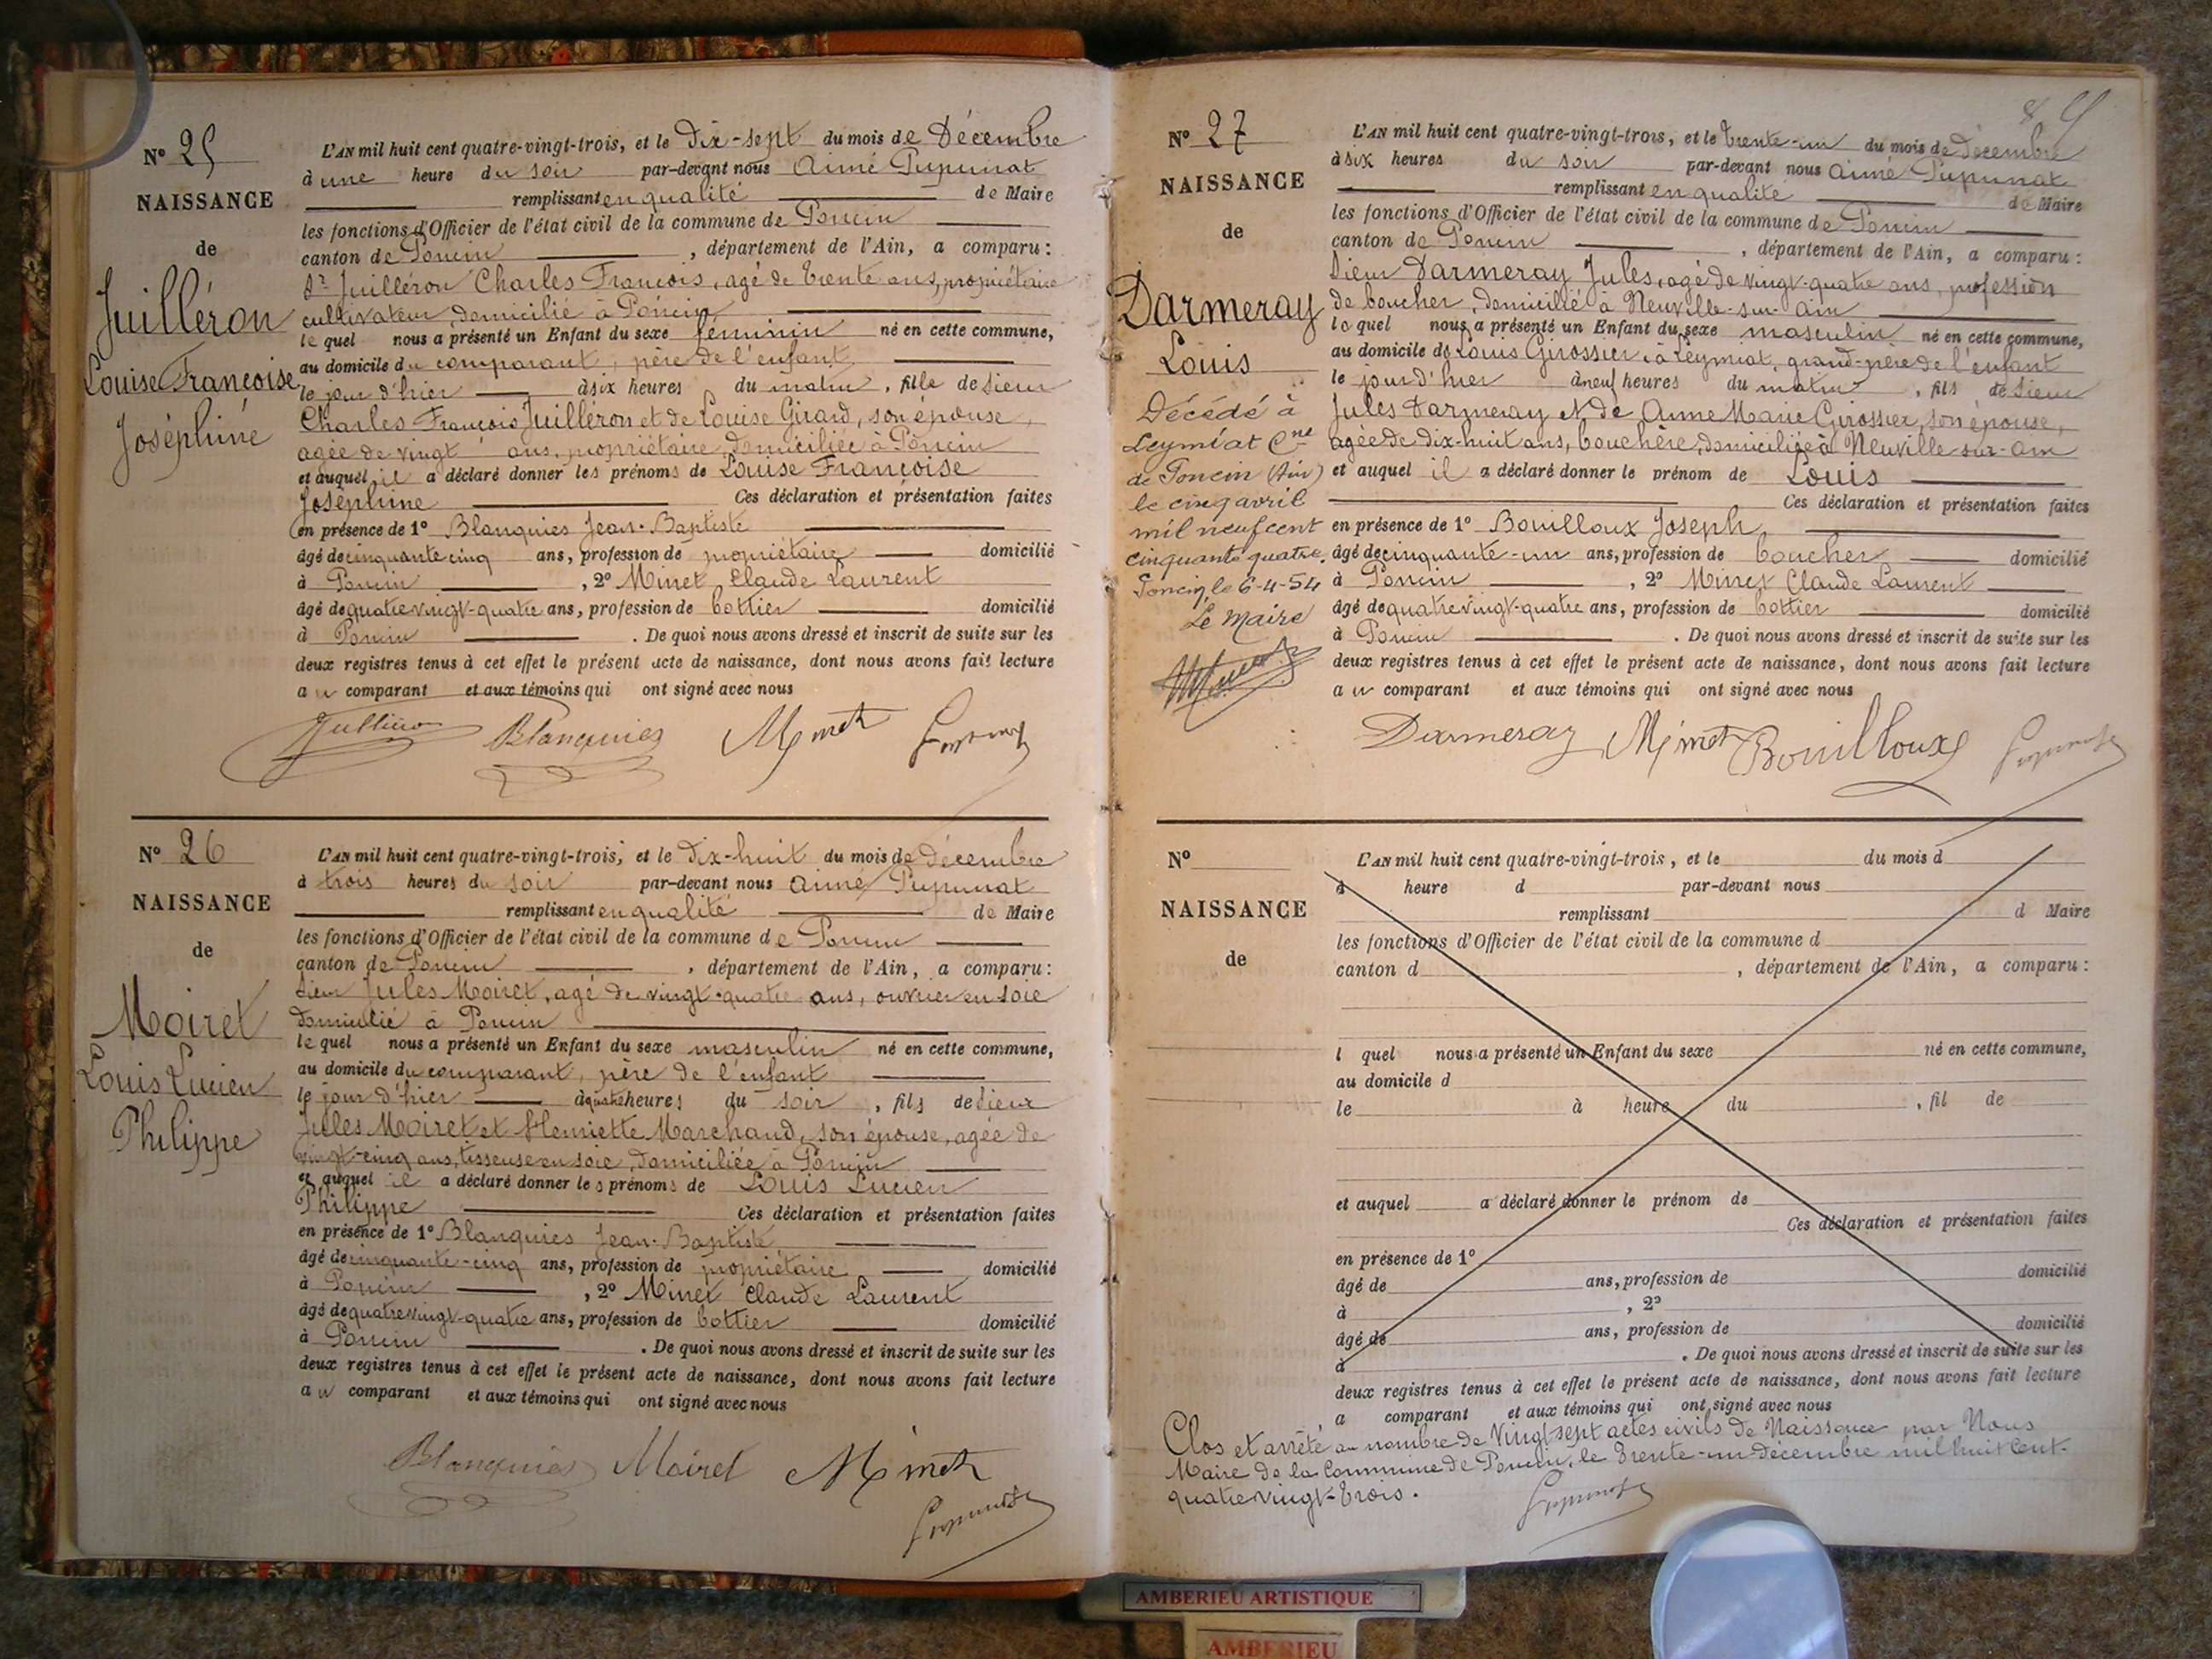 N° 25
NAISSANCE
de
Juilléron
Louise Françoise
Joséphine
L'AN mil huit cent quatre-vingt-trois, et le Dix-sept du mois de Décembre
à une heure du soir par-devant nous Aimé Pupunat
remplissant en qualité de Maire
les fonctions d'Officier de l'état civil de la commune de Poncin
canton de Poncin, département de l'Ain, a comparu :
Sr Juilléron Charles François, agé de trente ans, propriétaire
cultivateur, domicilié à Poncin
le quel nous a présenté un Enfant du sexe féminin né en cette commune,
au domicile du comparant, père de l'enfant
le jour d'hier à six heures du matin, fille de Sieur
Charles François Juilléron et de Louise Girard, son épouse,
agée de vingt ans, propriétaire, domiciliée à Poncin
et auquel il a déclaré donner les prénoms de Louise Françoise
Joséphine Ces déclaration et présentation faites
en présence de 1° Blanquies Jean-Baptiste
âgé de cinquante cinq ans, profession de propriétaire domicilié
à Poncin, 2° Minet Claude Laurent
âgé de quatrevingt-quatre ans, profession de bottier domicilié
à Poncin. De quoi nous avons dressé et inscrit de suite sur les
deux registres tenus à cet effet le présent acte de naissance, dont nous avons fait lecture
au comparant et aux témoins qui ont signé avec nous
Juilléron Blanquies Minet Pupunat
N° 26
NAISSANCE
de
Moiret
Louis Lucien
Philippe
L'AN mil huit cent quatre-vingt-trois, et le Dix-huit du mois de Décembre
à trois heures du soir par-devant nous Aimé Pupunat
remplissant en qualité de Maire
les fonctions d'Officier de l'état civil de la commune de Poncin
canton de Poncin, département de l'Ain, a comparu :
Sieur Jules Moiret, agé de vingt-quatre ans, ouvrier en soie
domicilié à Poncin
le quel nous a présenté un Enfant du sexe masculin né en cette commune,
au domicile du comparant, père de l'enfant
le jour d'hier à quatre heures du soir, fils de Sieur
Jules Moiret et Henriette Marchand, son épouse, agée de
vingt-cinq ans, tisseuse en soie, domiciliée à Poncin
et auquel il a déclaré donner les prénoms de Louis Lucien
Philippe Ces déclaration et présentation faites
en présence de 1° Blanquies Jean-Baptiste
âgé de cinquante-cinq ans, profession de propriétaire domicilié
à Poncin, 2° Minet Claude Laurent
âgé de quatrevingt-quatre ans, profession de bottier domicilié
à Poncin. De quoi nous avons dressé et inscrit de suite sur les
deux registres tenus à cet effet le présent acte de naissance, dont nous avons fait lecture
au comparant et aux témoins qui ont signé avec nous
Blanquies Moiret Minet
Pupunat
N° 27
NAISSANCE
de
Darmeray
Louis
Décédé à
Leymiat Cne
de Poncin (Ain)
le cinq avril
mil neuf cent
cinquante quatre.
Poncin, le 6-4-54
Le Maire
L'AN mil huit cent quatre-vingt-trois, et le trente-un du mois de Décembre
à six heures du soir par-devant nous Aimé Pupunat
remplissant en qualité de Maire
les fonctions d'Officier de l'état civil de la commune de Poncin
canton de Poncin, département de l'Ain, a comparu :
Sieur Darmeray Jules, agé de vingt-quatre ans, profession
de boucher, domicilié à Neuville-sur-Ain
le quel nous a présenté un Enfant du sexe masculin né en cette commune,
au domicile de Louis Girossier, à Leymiat, grand-père de l'enfant
le jour d'hier à neuf heures du matin, fils de Sieur
Jules Darmeray et de Anne Marie Girossier, son épouse,
agée de dix-huit ans, bouchère, domiciliée à Neuville-sur-Ain
et auquel il a déclaré donner le prénom de Louis
Ces déclaration et présentation faites
en présence de 1° Bouilloux Joseph
âgé de cinquante-un ans, profession de boucher domicilié
à Poncin, 2° Minet Claude Laurent
âgé de quatrevingt-quatre ans, profession de bottier domicilié
à Poncin. De quoi nous avons dressé et inscrit de suite sur les
deux registres tenus à cet effet le présent acte de naissance, dont nous avons fait lecture
au comparant et aux témoins qui ont signé avec nous
Darmeray Minet Bouilloux Pupunat
N°
NAISSANCE
de
L'AN mil huit cent quatre-vingt-trois, et le du mois d
à heure d par-devant nous
remplissant d Maire
les fonctions d'Officier de l'état civil de la commune d
canton d, département de l'Ain, a comparu :
l quel nous a présenté un Enfant du sexe né en cette commune,
au domicile d
le à heure du, fil de
et auquel a déclaré donner le prénom de
Ces déclaration et présentation faites
en présence de 1°
âgé de ans, profession de domicilié
à, 2°
âgé de ans, profession de domicilié
à. De quoi nous avons dressé et inscrit de suite sur les
deux registres tenus à cet effet le présent acte de naissance, dont nous avons fait lecture
a comparant et aux témoins qui ont signé avec nous
Clos et arrêté au nombre de Vingt sept actes civils de Naissance par Nous
Maire de la Commune de Poncin, le Trente-un Décembre mil huit Cent-
quatrevingt-trois.
Pupunat
AMBERIEU ARTISTIQUE
AMBERIEU